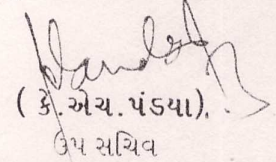 ( કે. એચ. પંડયા).
ઉપ સચિવ